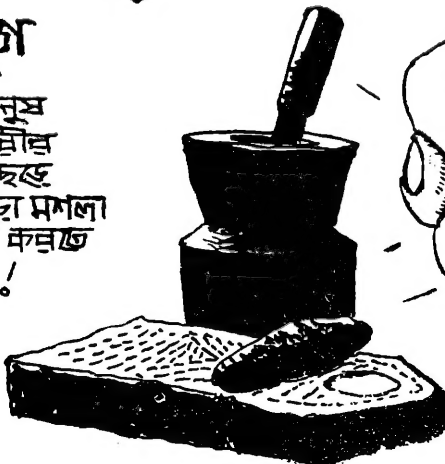 নুষ
রীর
ছেড়ে
মশলা
করতে
!